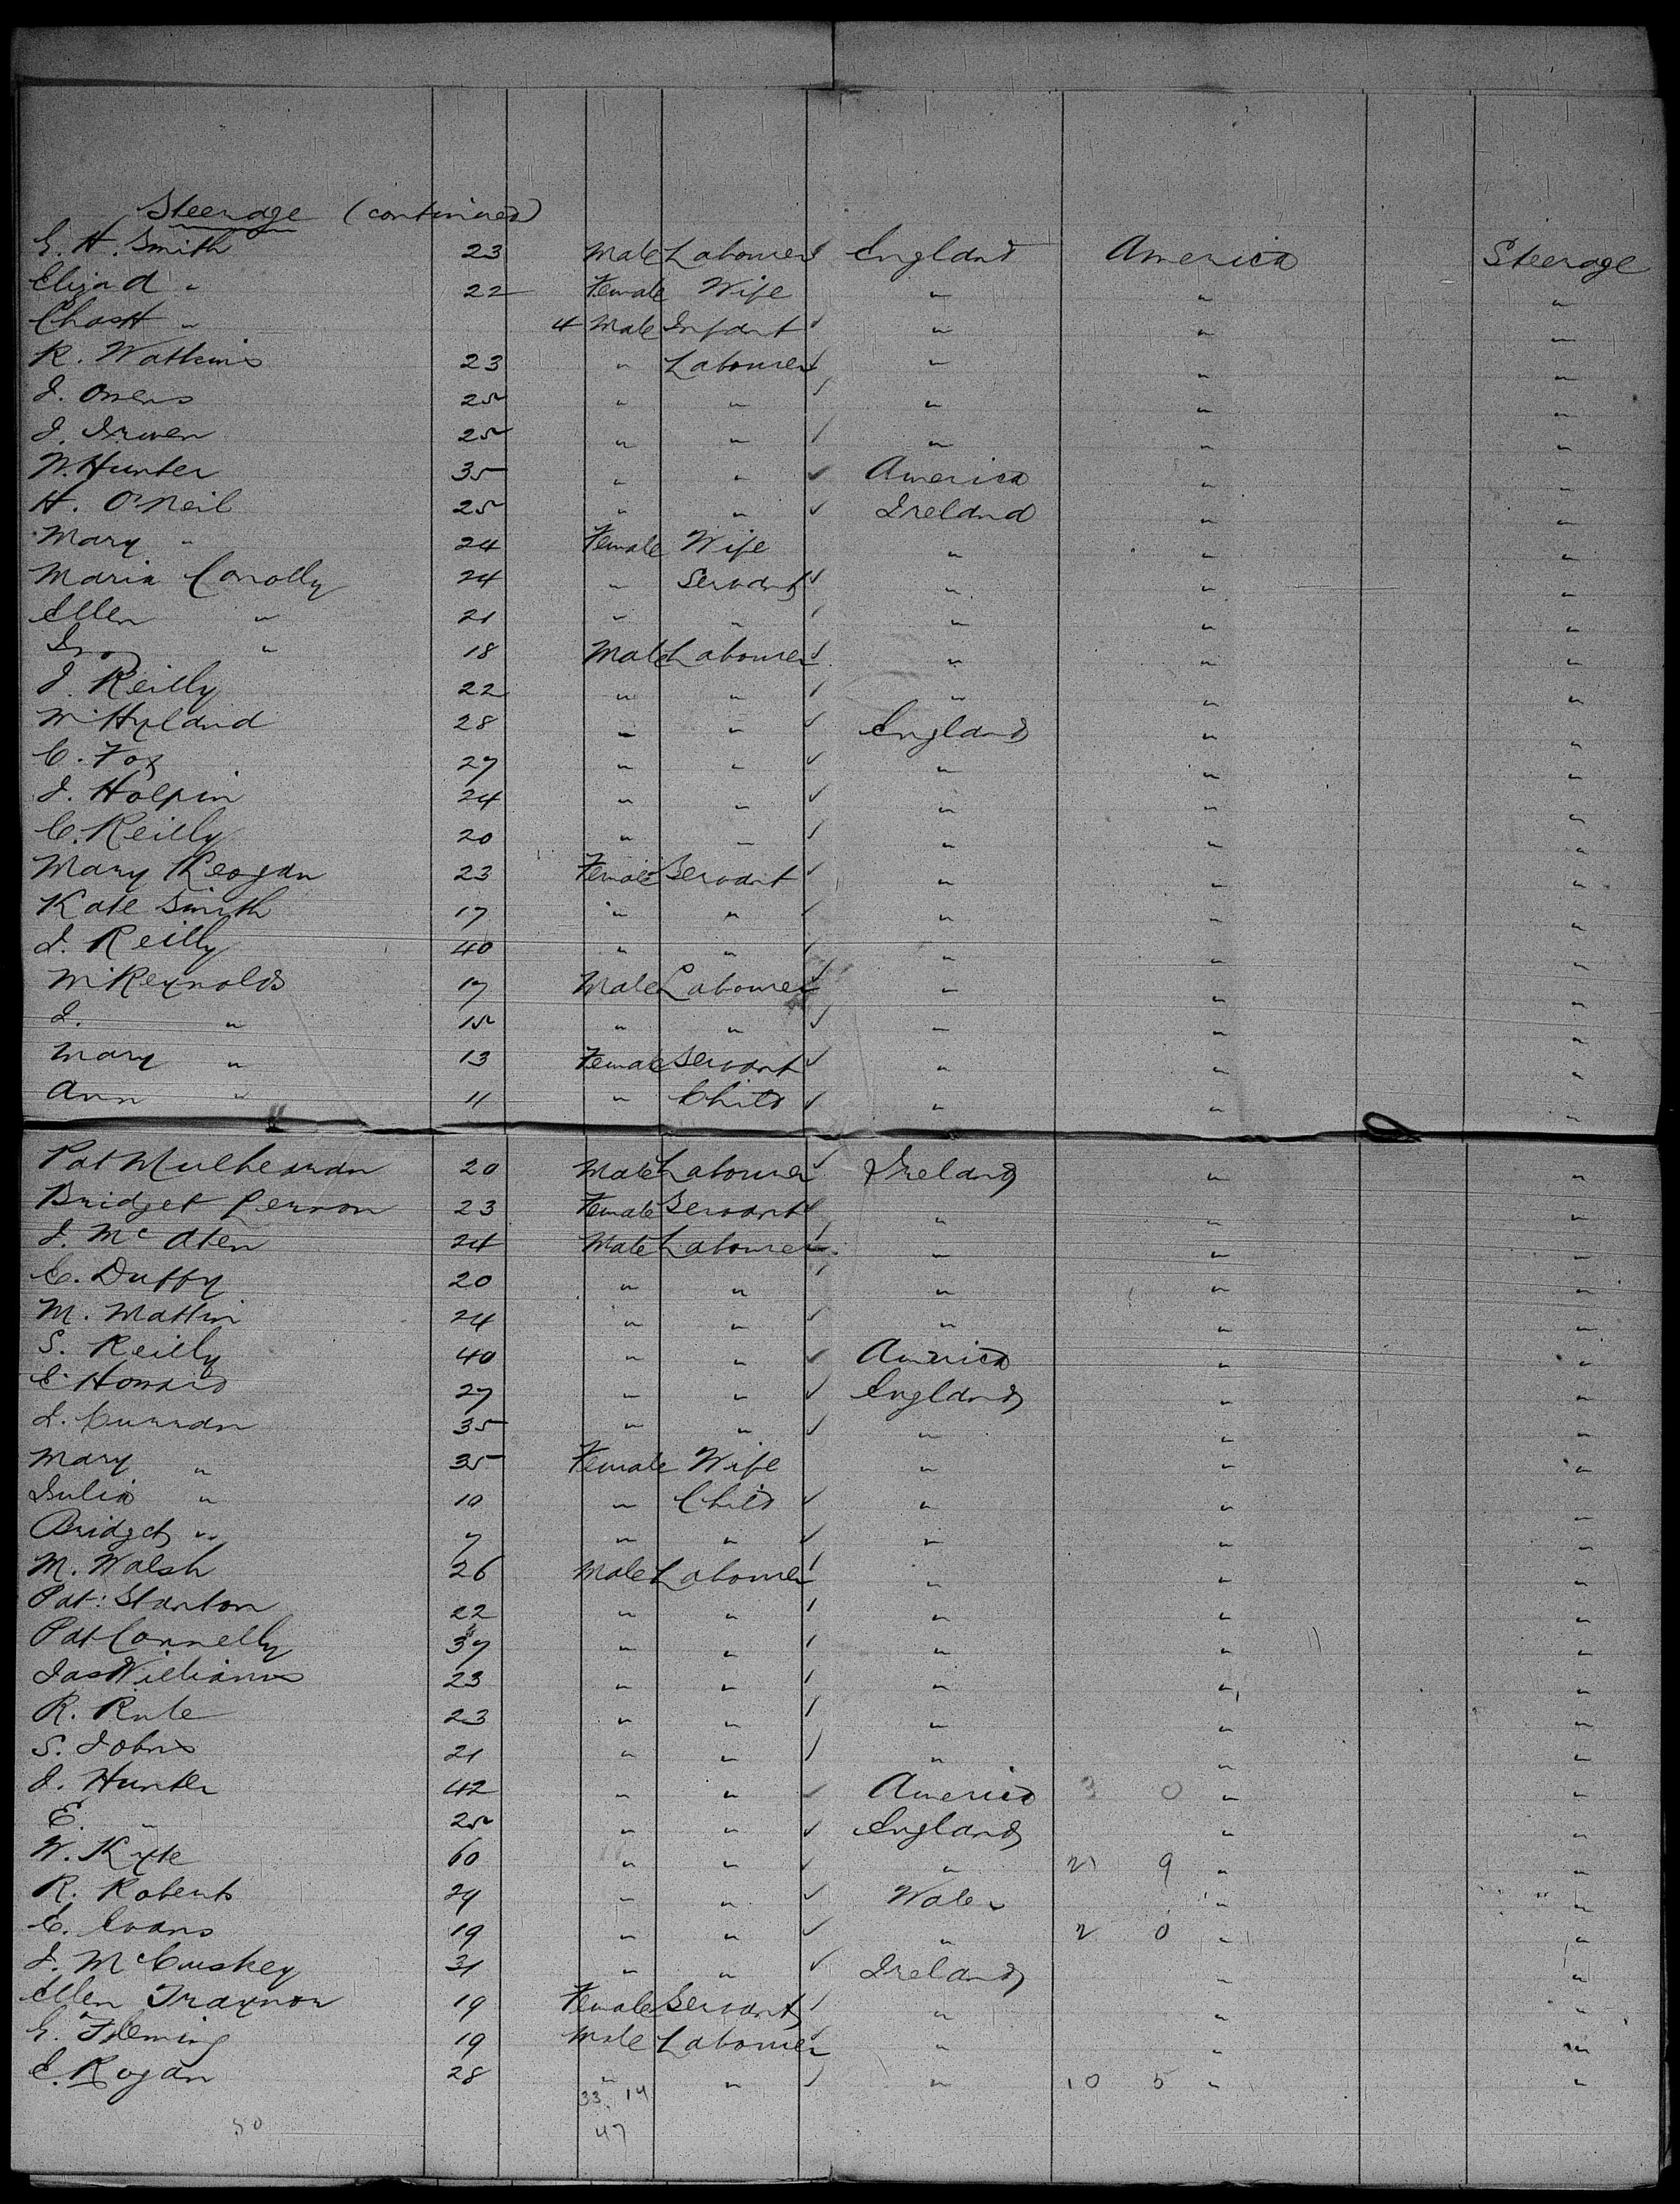 Steerage (continued)
G. H. Smith 23 Male Labourer ✓ England America Steerage
Eliza A " 22 Female Wife " " "
Chas H " 4 Male Infant ✓ " " "
R. Watkins 23 " Labourer ✓ " " "
J. Owens 25 " " ✓ " " "
J. Irwen 25 " " ✓ " " "
W. Hunter 35 " " ✓ America " "
H. O'Neil 25 " " ✓ Ireland " "
Mary " 24 Female Wife " " "
Maria Conolly 24 " Servant ✓ " " "
Ellen " 21 " " ✓ " " "
" 18 Male Labourer ✓ " " "
J. Reilly 22 " " ✓ " " "
W. Hyland 28 " " ✓ England " "
C. Fox 27 " " ✓ " " "
J. Halpin 24 " " ✓ " " "
C. Reilly 20 " " ✓ " " "
Mary Keogan 23 Female Servant ✓ " " "
Kate Smith 17 " " ✓ " " "
J. Reilly 40 " " ✓ " " "
W. Reynolds 17 Male Labourer ✓ " " "
J. " 15 " " ✓ " " "
Mary " 13 Female Servant ✓ " " "
Ann " 11 " Child ✓ " " "
Pat 20 Male Labourer ✓ Ireland " "
Bridget 23 Female Servant ✓ " " "
J. 24 Male Labourer ✓ " " "
C. Duffy 20 " " ✓ " " "
M. 24 " " ✓ " " "
S. Reilly 40 " " ✓ America " "
E. Howard 27 " " ✓ England " "
J. Curran 35 " " ✓ " " "
Mary " 35 Female Wife " " "
Julia " 10 " Child ✓ " " "
Bridget " 7 " " ✓ " " "
M. Walsh 26 Male Labourer ✓ " " "
Pat: Stanton 22 " " ✓ " " "
Pat Connelly 37 " " ✓ " " "
Jas Williams 23 " " ✓ " " "
R. 23 " " ✓ " " "
S. Johns 21 " " ✓ " " "
J. Hunter 42 " " ✓ America 3 0 " "
E. " 25 " " ✓ England " "
W. Kyte 60 " " ✓ " 21 9 " "
R. Roberts 29 " " ✓ Wales " "
E. Evans 19 " " ✓ " 2 0 " "
J. McCuskey 31 " " ✓ Ireland " "
Ellen Traynor 19 Female Servant ✓ " " "
G. Fleming 19 Male Labourer ✓ " " "
E. Rogan 28 " " ✓ " 10 5 " "
33. 14
50 47